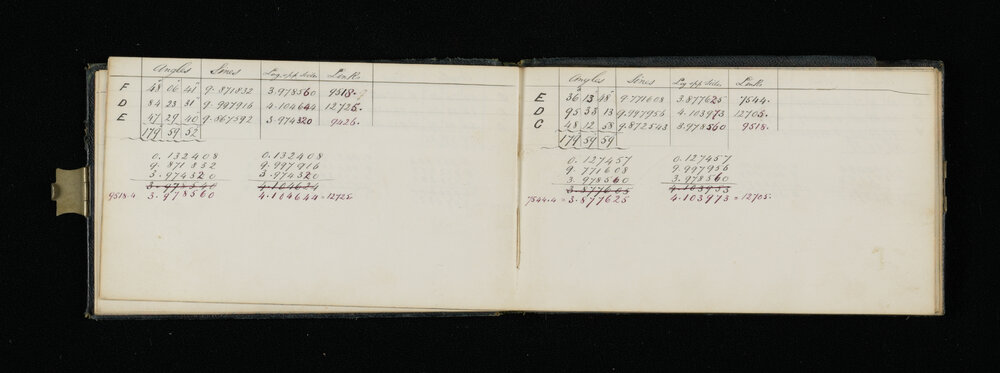 Angles Sines Log. opp. sides Links
F 48 06 41 9.871832 3.978560 9518.
D 84 23 31 9.997916 4.104644 12725.
E 47 29 40 9.867592 3.974320 9426.
179 59 52
0.132408 0.132408
9.871832 9.997916
3.974320 3.974320
4.104624
9518.4 3.978560 4.104644 = 12725.
Angles Sines Log. opp. sides Links
E 36 13 48 9.771608 3.877625 7544.
D 95 33 13 9.997956 4.103973 12705.
C 48 12 58 9.872543 3.978560 9518.
179 59 59
0.127457 0.127457
9.771608 9.997956
3.978560 3.978560
3.877605 4.103953
7544.4 = 3.877625 4.103973 = 12705.